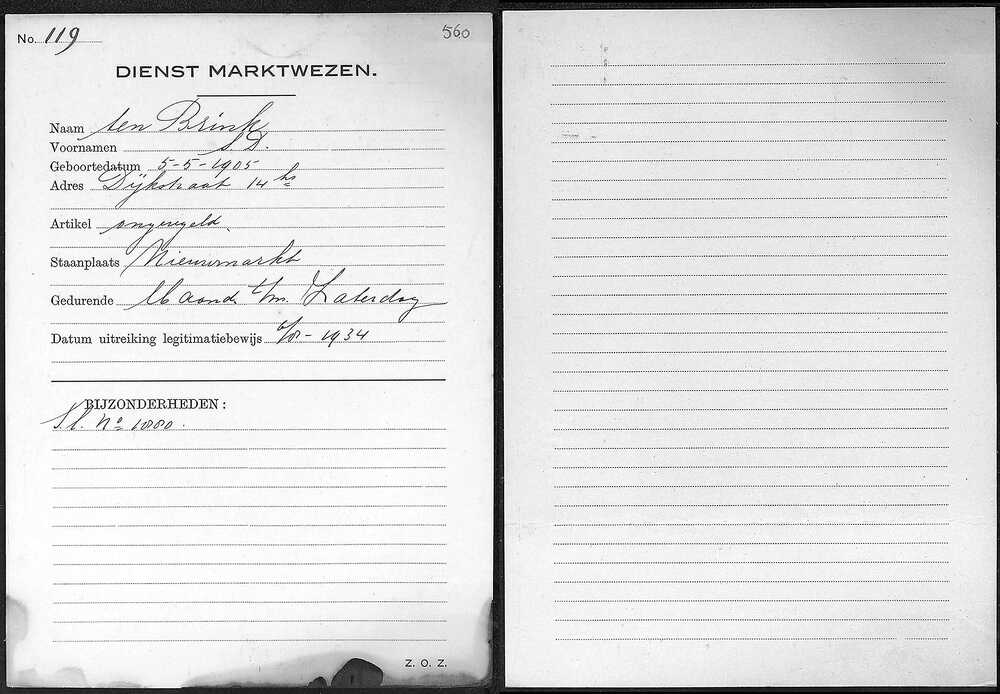 No. 119
560
DIENST MARKTWEZEN.
Naam ten Brink
Voornamen S. D.
Geboortedatum 5-5-1905
Adres Dijkstraat 14 hs
Artikel ongeregeld.
Staanplaats Nieuwmarkt
Gedurende Maand. t/m. Zaterdag
Datum uitreiking legitimatiebewijs - 1934
BIJZONDERHEDEN:
No 1880.
Z. O. Z.